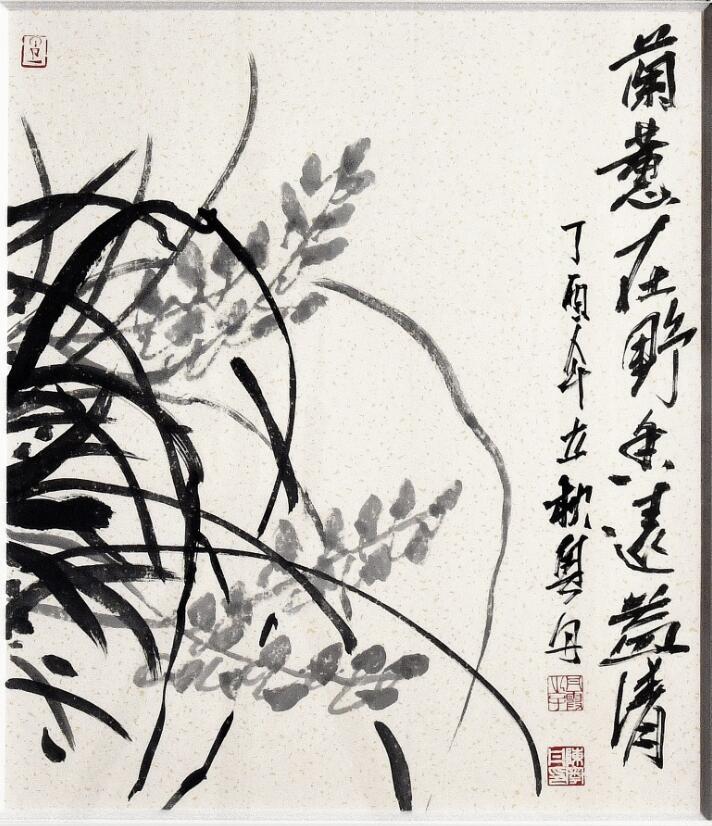 蘭蕙在野香遠益清
丁酉年立秋